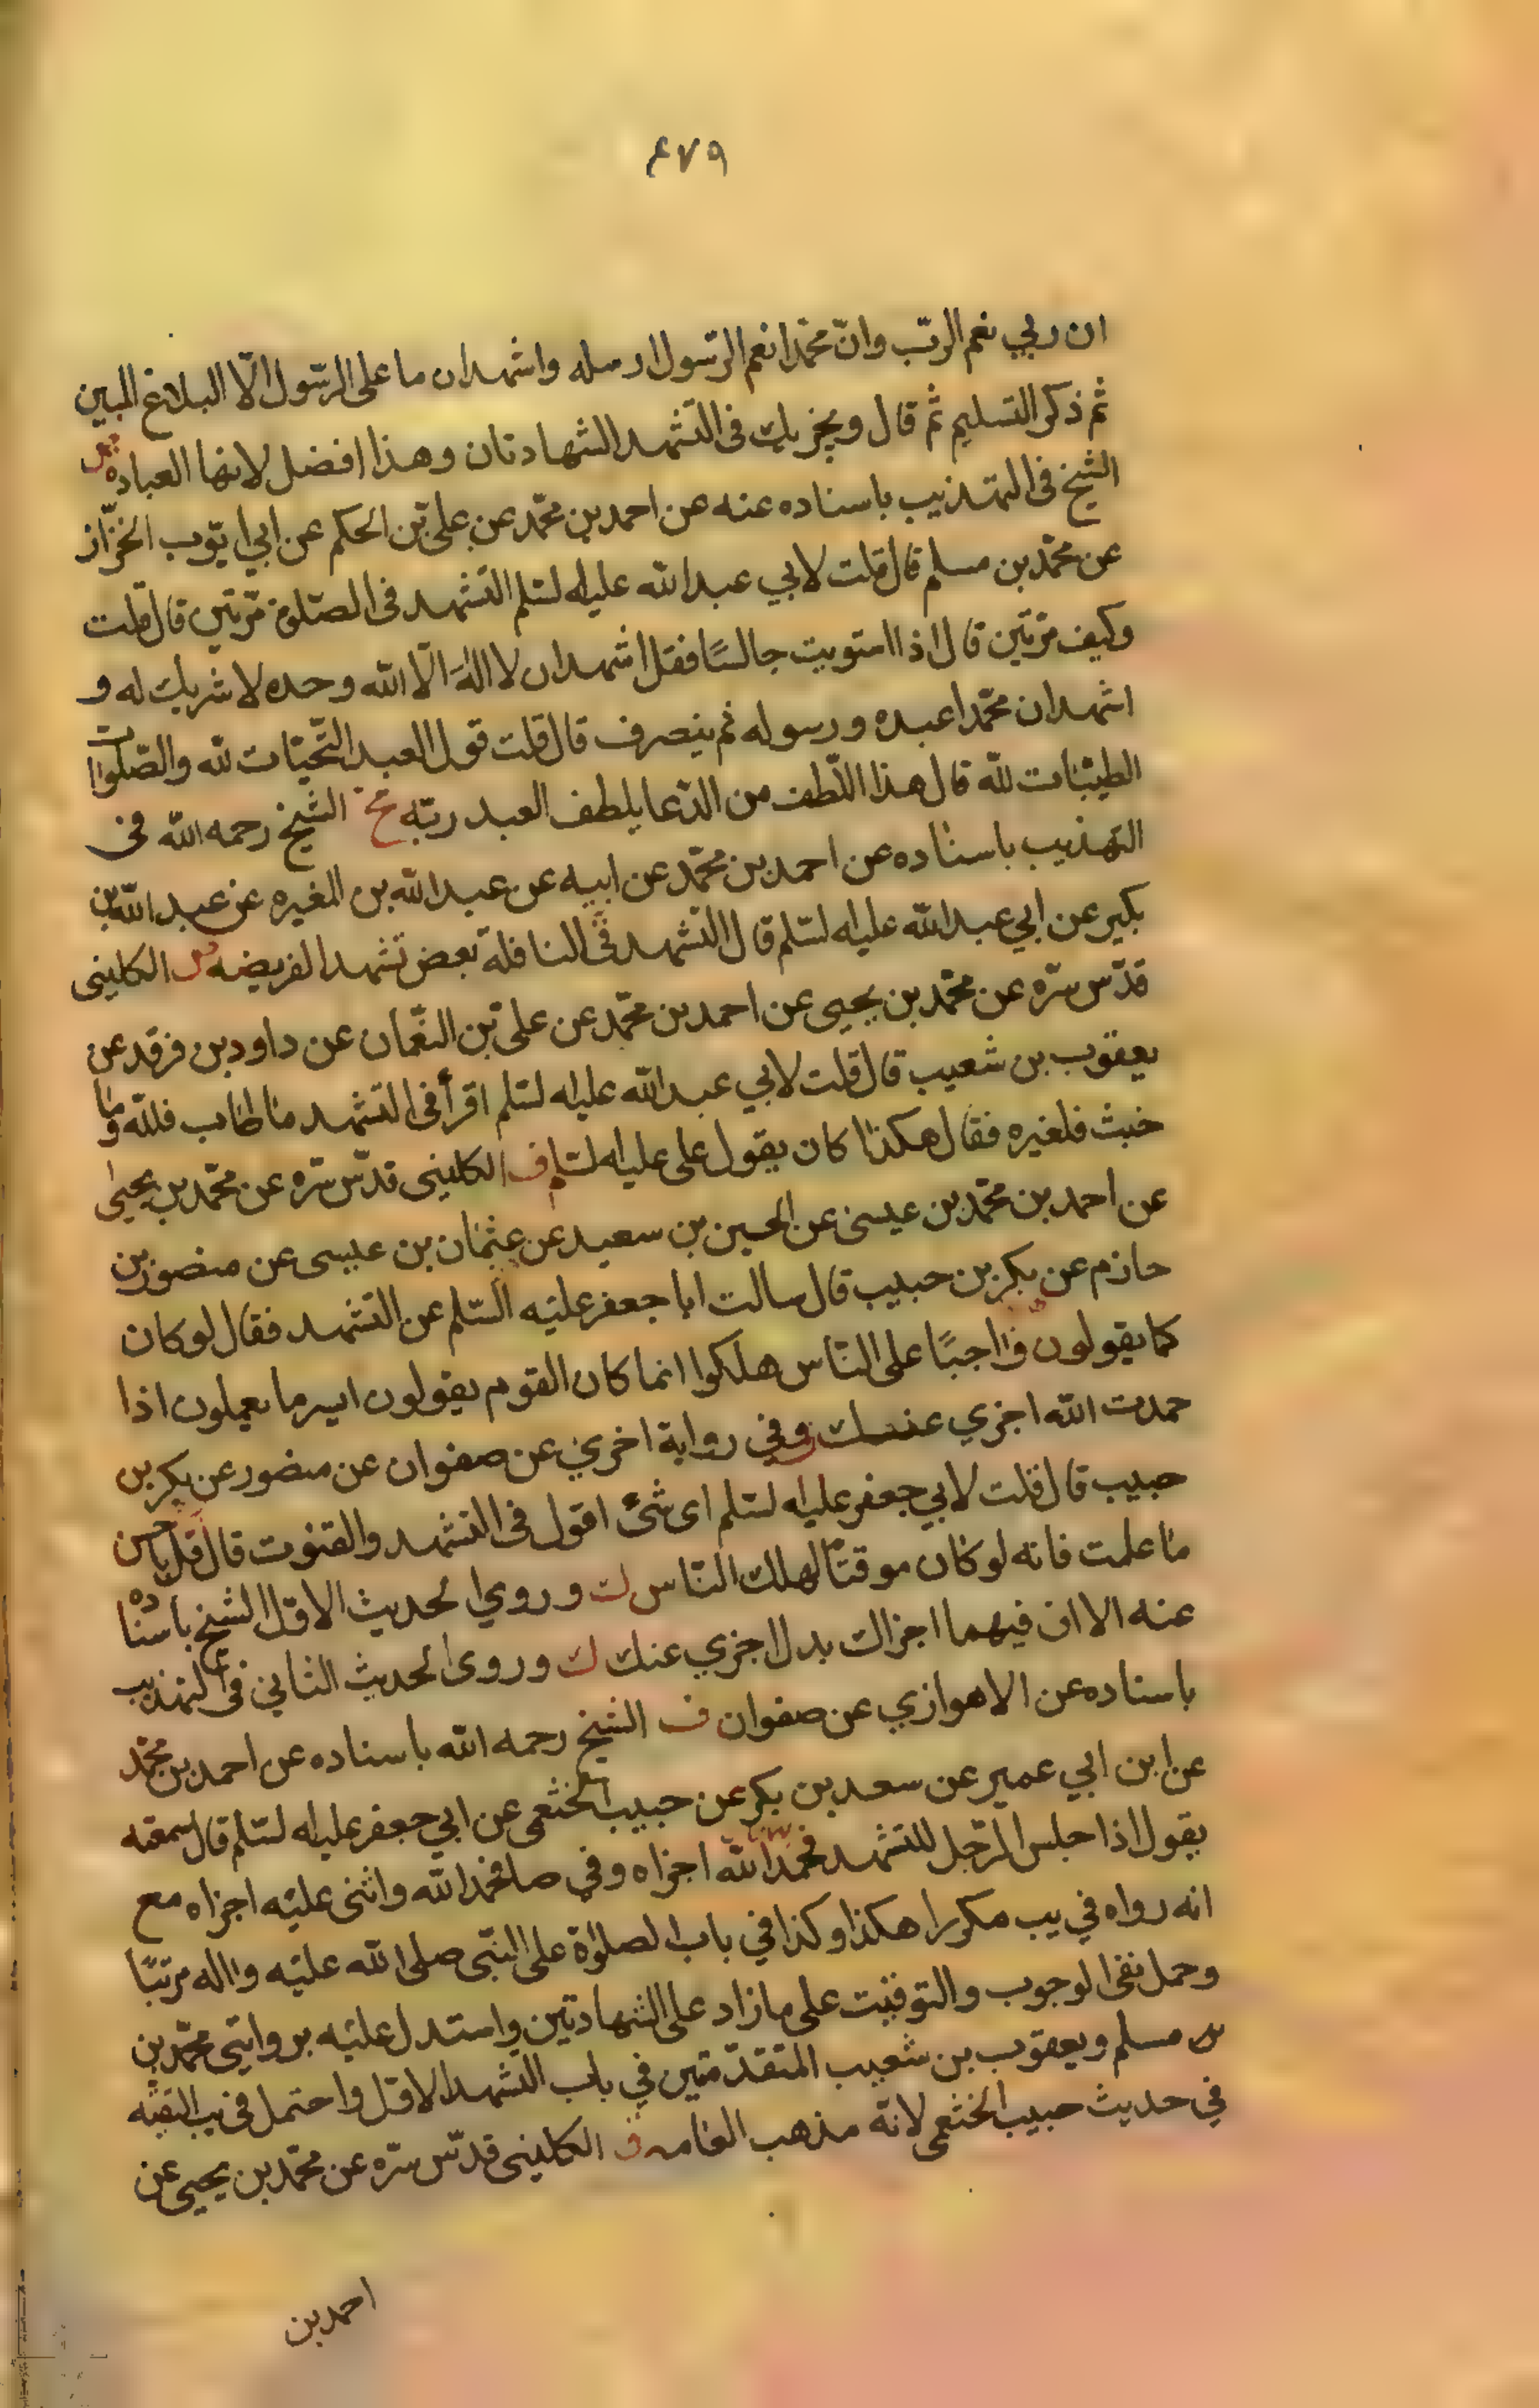 ٤٧٩
ان ربي نعم الربّ وانّ محمّدا نعم الرّسول ارسله واشهد ان ما على الرّسول الّا البلاغ المبين
ثم ذكر التسليم ثم قال ويجزيك فى التّشهد الشهادتان وهذا افضل لانها العباده
الشيخ فى التهذيب باسناده عنه عن احمد بن محمّد عن علىّ بن الحكم عن ابي ايّوب الخزّاز
عن محمّد بن مسلم قال قلت لابي عبد الله عليه السّلم التشهد فى الصّلوة مرّتين قال قلت
وكيف مرّتين قال اذا استويت جالسًا فقل اشهد ان لا اله الّا الله وحده لا شريك له و
اشهد ان محمّدا عبده ورسوله ثم ينصرف قال قلت قول العبد التّحيّات لله والصّلوات
الطيّبات لله قال هذا اللّطف من الدّعا يلطف العبد ربّه الشيخ رحمه الله فى
التهذيب باسناده عن احمد بن محمّد عن ابيه عن عبد الله بن المغيره عن عبد الله بن
بكير عن ابي عبد الله عليه السّلم قال التّشهد فى النافلة بعض تشهد الفريضه الكلينى
قدّس سرّه عن محمّد بن يحيى عن احمد بن محمّد عن علىّ بن النعّمان عن داود بن فرقد عن
يعقوب بن شعيب قال قلت لابي عبد الله عليه السّلم اقرأ فى التشهد ما طاب فللّه وما
خبث فلغيره فقال هكذا كان يقول على عليه السّلم ف الكلينى قدّس سرّه عن محمّد بن يحيى
عن احمد بن محمّد بن عيسى عن الحسين بن سعيد عن عثمان بن عيسى عن منصور بن
حازم عن بكر بن حبيب قال سالت ابا جعفر عليه السّلم عن التشهد فقال لو كان
كما يقولون واجبًا على النّاس هلكوا انما كان القوم يقولون ايسر ما يعملون اذا
حمدت الله اجزي عنك وفي رواية اخري عن صفوان عن منصور عن بكر بن
حبيب قال قلت لابي جعفر عليه السّلم اى شئ اقول فى التشهد والقنوت قال قل باحسن
ما علمت فانه لو كان موقتًا لهلك النّاس ك وروي الحديث الاوّل الشيخ باسناده
عنه الا ان فيهما اجزاك بدل اجزي عنك ك وروى الحديث الثاني فى التهذيب
باسناده عن الاهوازي عن صفوان ف الشيخ رحمه الله باسناده عن احمد بن محمّد
عن ابن ابي عمير عن سعد بن بكر عن حبيب الخثعمى عن ابي جعفر عليه السّلم قال سمعته
يقول اذا جلس الرّجل للتشهد فحمد الله اجزاه وفي صا فحمد الله واثنى عليه اجزاه مع
انه رواه في يب مكررا هكذا وكذا في باب الصلوة على النبّى صلى الله عليه واله مرتبًا
وحمل نفى الوجوب والتوقيت على ما زاد على الشهادتين واستدل عليه بروايتى محمّد بن
مسلم ويعقوب بن شعيب المتقدّمتين في باب التشهد الاوّل واحتمل فى يب التقيّه
في حديث حبيب الخثعمى لانّه مذهب العامه ف الكلينى قدّس سرّه عن محمّد بن يحيى عن
احمد بن